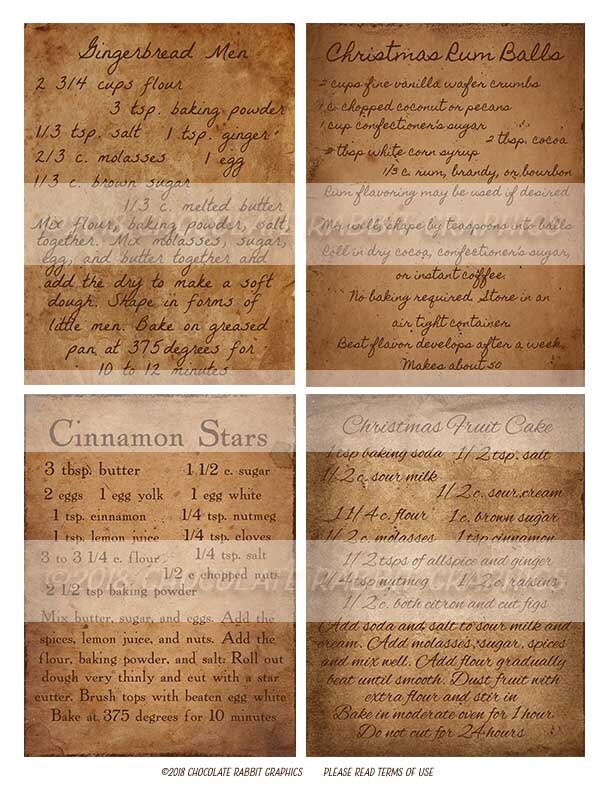 Gingerbread Men
2 3/4 cups flour
3 tsp. baking powder
1/3 tsp. salt 1 tsp. ginger
2/3 c. molasses 1 egg
1/3 c. brown sugar
1/3 c. melted butter
Mix flour, baking powder, salt
together. Mix molasses, sugar,
egg, and butter together and
add the dry to make a soft
dough. Shape in forms of
little men. Bake on greased
pan at 375 degrees for
10 to 12 minutes
Christmas Rum Balls
2 cups fine vanilla wafer crumbs
1 c. chopped coconut or pecans
1 cup confectioner's sugar
2 tbsp. cocoa
tbsp white corn syrup
1/3 c. rum, brandy, or bourbon
Rum flavoring may be used if desired
Mix well, shape by teaspoons into balls
Roll in dry cocoa, confectioner's sugar,
or instant coffee.
No baking required. Store in an
air tight container.
Best flavor develops after a week.
Makes about 50
©2018 CHOCOLATE RABBIT GRAPHICS
Cinnamon Stars
3 tbsp. butter 1 1/2 c. sugar
2 eggs 1 egg yolk 1 egg white
1 tsp. cinnamon 1/4 tsp. nutmeg
1 tsp. lemon juice 1/4 tsp. cloves
3 to 3 1/4 c. flour 1/4 tsp. salt
1/2 c chopped nuts
2 1/2 tsp baking powder
Mix butter, sugar, and eggs. Add the
spices, lemon juice, and nuts. Add the
flour, baking powder, and salt. Roll out
dough very thinly and cut with a star
cutter. Brush tops with beaten egg white
Bake at 375 degrees for 10 minutes
Christmas Fruit Cake
1 tsp baking soda 1/2 tsp. salt
1/2 c. sour milk
1/2 c. sour cream
1 1/4 c. flour 1 c. brown sugar
1/2 c. molasses 1 tsp cinnamon
1/2 tsps of allspice and ginger
1/4 tsp nutmeg 1/2 c. raisins
1/2 c. both citron and cut figs
Add soda and salt to sour milk and
cream. Add molasses, sugar, spices
and mix well. Add flour gradually
beat until smooth. Dust fruit with
extra flour and stir in
Bake in moderate oven for 1 hour
Do not cut for 24 hours
©2018 CHOCOLATE RABBIT GRAPHICS
©2018 CHOCOLATE RABBIT GRAPHICS PLEASE READ TERMS OF USE